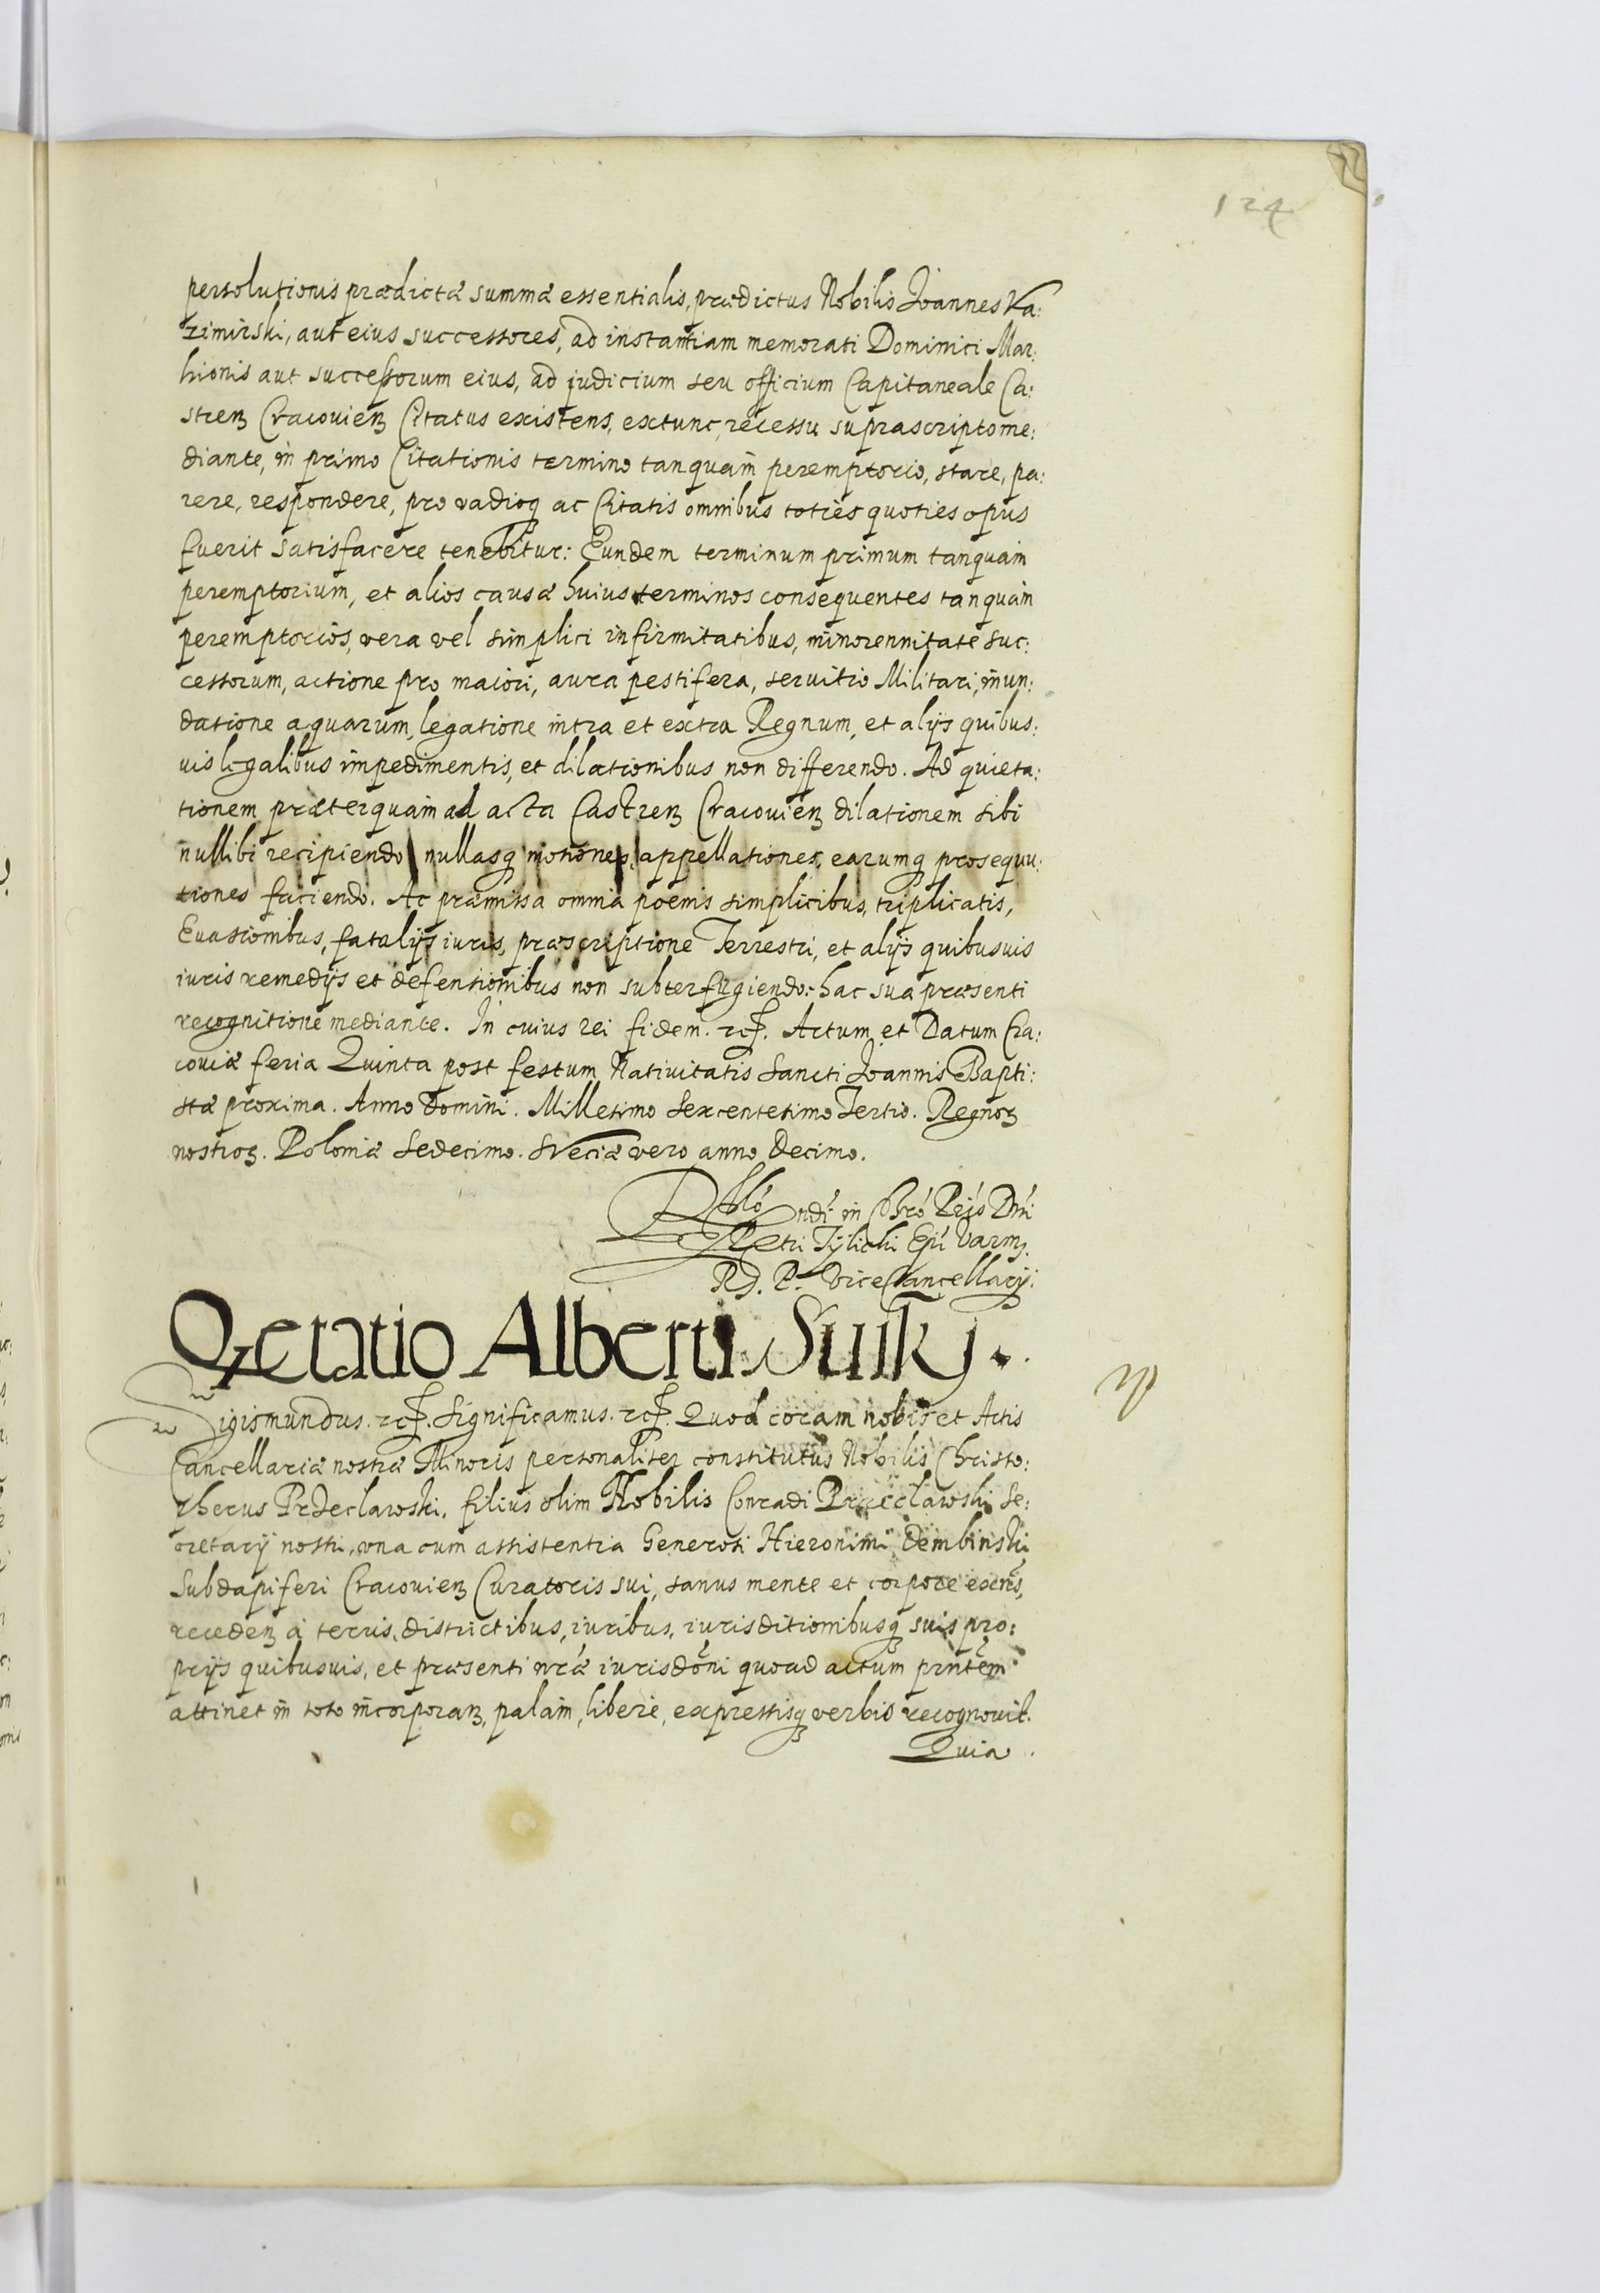 124
persolutionis prædictæ summæ essentialis, prædictus Nobilis Joannes Ka:
zimirski, aut eius successores, ad instantiam memorati Dominici Mar:
hionis aut successorum eius, ad judicium seu officium Capitaneale Ca:
stren Cracovien Citatus existens, extunc, recessu suprascripto me:
diante, in primo Citationis termino tanquam peremptorio, stare, pa:
rere, respondere, pro vadioq ac Citatis omnibus toties quoties opus
fuerit satisfacere tenebitur: Eundem terminum primum tanquam
peremptorium, et alios causæ huius terminos consequentes tanquam
peremptorios, vera vel simplici infirmitatibus, minorennitate suc:
cessorum, actione pro maiori, aura pestifera, servitio Militari, inun:
datione aquarum, legatione intra et extra Regnum, et alijs quibus:
vis legalibus impedimentis, et dilationibus non differendo. Ad quieta:
tionem præterquam ad acta Castren Cracovien dilationem sibi
nullibi recipiendo nullasq motiones, appellationes, earumq prosequu:
tiones faciendo. Ac præmissa omnia poenis simplicibus, triplicatis,
Evasionibus, fatalijs iuris, præscriptione Terrestri, et alijs quibusuis
iuris remedijs et defensionibus non subterfugiendo: hac sua præsenti
recognitione mediante. In cuius rei fidem. rcf. Actum et Datum Cra:
coviæ feria Quinta post festum Nativitatis Sancti Joannis Bapti:
stæ proxima. Anno Domini. Millesimo Sexcentesimo Tertio. Regnoꝝ
nostroꝝ. Poloniæ Sedecimo. Sveciæ vero anno Decimo.
Rndi in Chro
Petri Tylicki Epi Varm.
R. P. ViceCancellarij.
Qietatio Alberti Suisky.
Sigismundus. rcf. Significamus. rcf. Quod coram nobis et Actis
Cancellariæ nostræ Minoris personaliter constitutus Nobilis Christo:
pherus Preleclawski, filius olim Nobilis Conradi Preeclawski Se:
cretarij nostri, una cum assistentia Generosi Hieronimi Dembinski
Subdapiferi Cracovien Curatoris sui, sanus mente et corpore exñs,
receden à terris, districtibus, iuribus, iurisditionibusq suis pro:
prijs quibusuis, et præsenti nræ iurisdoni quoad actum prntem
attinet in toto incorporan, palam, libere, expressisq verbis recognovit.
Quia